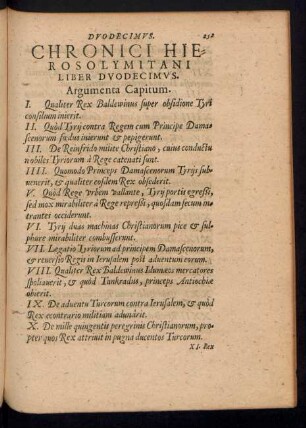 DVODECIMVS. 232
CHRONICI HIE-
ROSOLYMITANI
LIBER DVODECIMVS.
Argumenta Capitum.
I. Qualiter Rex Baldewinus super obsidione Tyri
consilium inierit.
II. Quòd Tyrij contra Regem cum Principe Dama-
scenorum fœdus inierunt & pepigerunt.
III. De Reinfrido milite Christiano, cuius conductu
nobiles Tyriorum à Rege catenati sunt.
IIII. Quomodo Princeps Damascenorum Tyrijs sub-
uenerit, & qualiter eosdem Rex obsederit.
V. Quòd Rege vrbem vallante, Tyrij portis egressi,
sed mox mirabiliter à Rege repressi, quosdam secum in-
trantes occiderunt.
VI. Tyrij duas machinas Christianorum pice & sul-
phure mirabiliter combusserunt.
VII. Legatio Tyriorum ad principem Damascenorum,
& reuersio Regis in Ierusalem post aduentum eorum.
VIII. Qualiter Rex Baldewinus Idumæos mercatores
spoliauerit, & quòd Tankradus, princeps Antiochiæ
obierit.
IX. De aduentu Turcorum contra Ierusalem, & quòd
Rex econtrario militiam adunârit.
X. De mille quingentis peregrinis Christianorum, pro-
pter quos Rex attriuit in pugna ducentos Turcorum.
XI. Rex